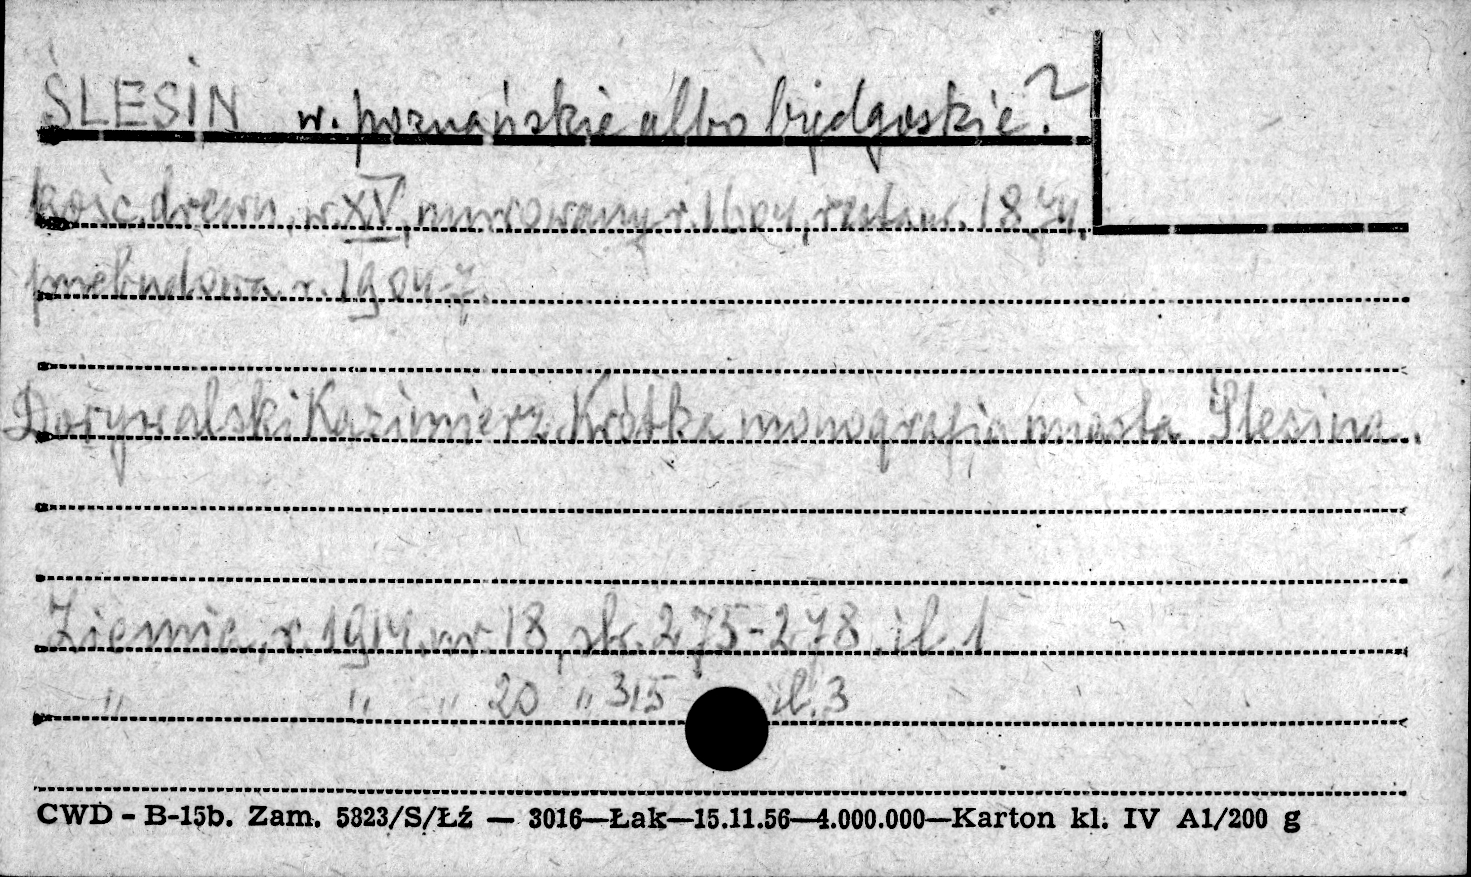 ŚLESIN w. poznańskie albo bydgoskie?
kośc. drewn. w. XV, murowany r. 1604, restaur. 1874,
przebudowa r. 1904-7.
Dorywalski Kazimierz. Krótka monografia miasta Ślesina.
Ziemia, r. 1914, nr. 18, str. 275-278, il. 1
" " " 20 " 315 il. 3
CWD - B-15b. Zam. 5823/S/Łź — 3016—Łak—15.11.56—4.000.000—Karton kl. IV A1/200 g